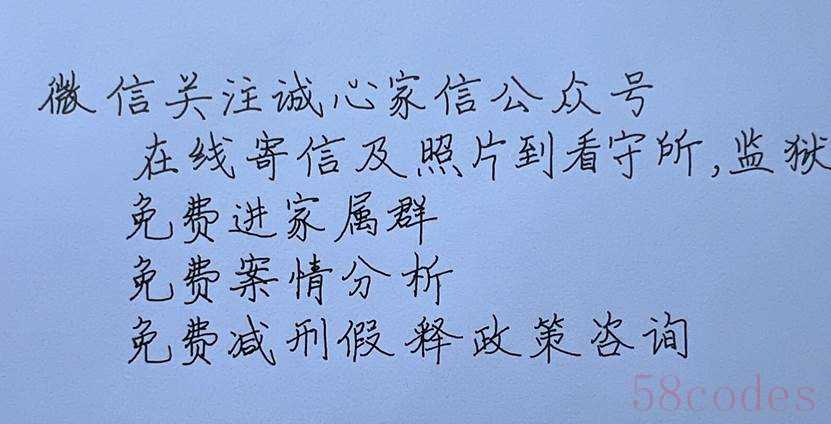 微信关注诚心家信公众号
在线寄信及照片到看守所,监狱
免费进家属群
免费案情分析
免费减刑假释政策咨询
58codes